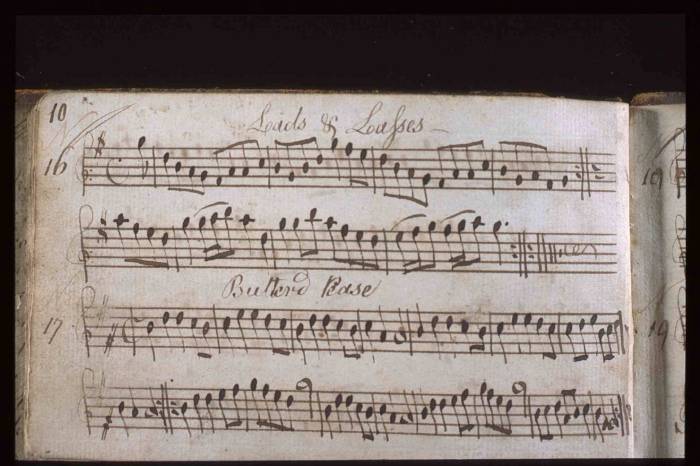 10
Lads & Lasses
16
Butterd Pease
17
19
19